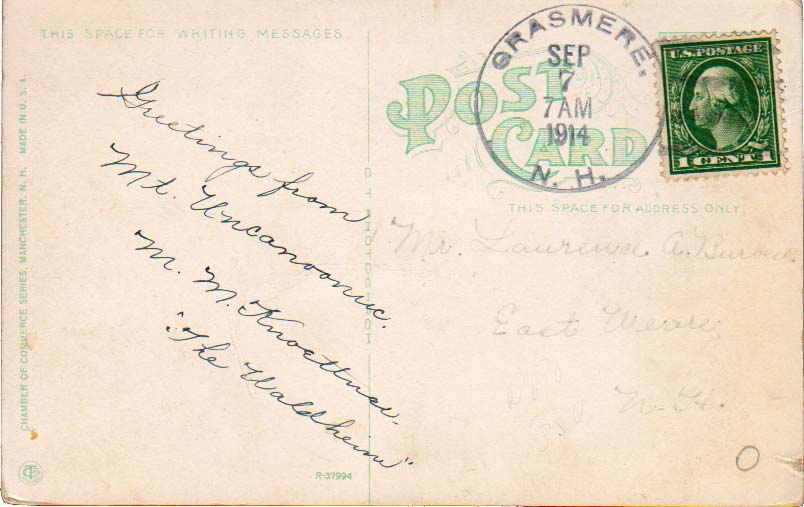 THIS SPACE FOR WRITING MESSAGES.
Greetings from
Mt. Uncanoonuc.
M. M. Knoettner.
"The Waldheim"
CHAMBER OF COMMERCE SERIES, MANCHESTER, N. H. MADE IN U. S. A.
R-37994
C. T. PHOTOCHROM
POST CARD
GRASMERE,
SEP
7
7AM
1914
N. H.
U.S. POSTAGE
1 CENT 1
THIS SPACE FOR ADDRESS ONLY.
Mr. Laurence A.
East Weare,
N. H.